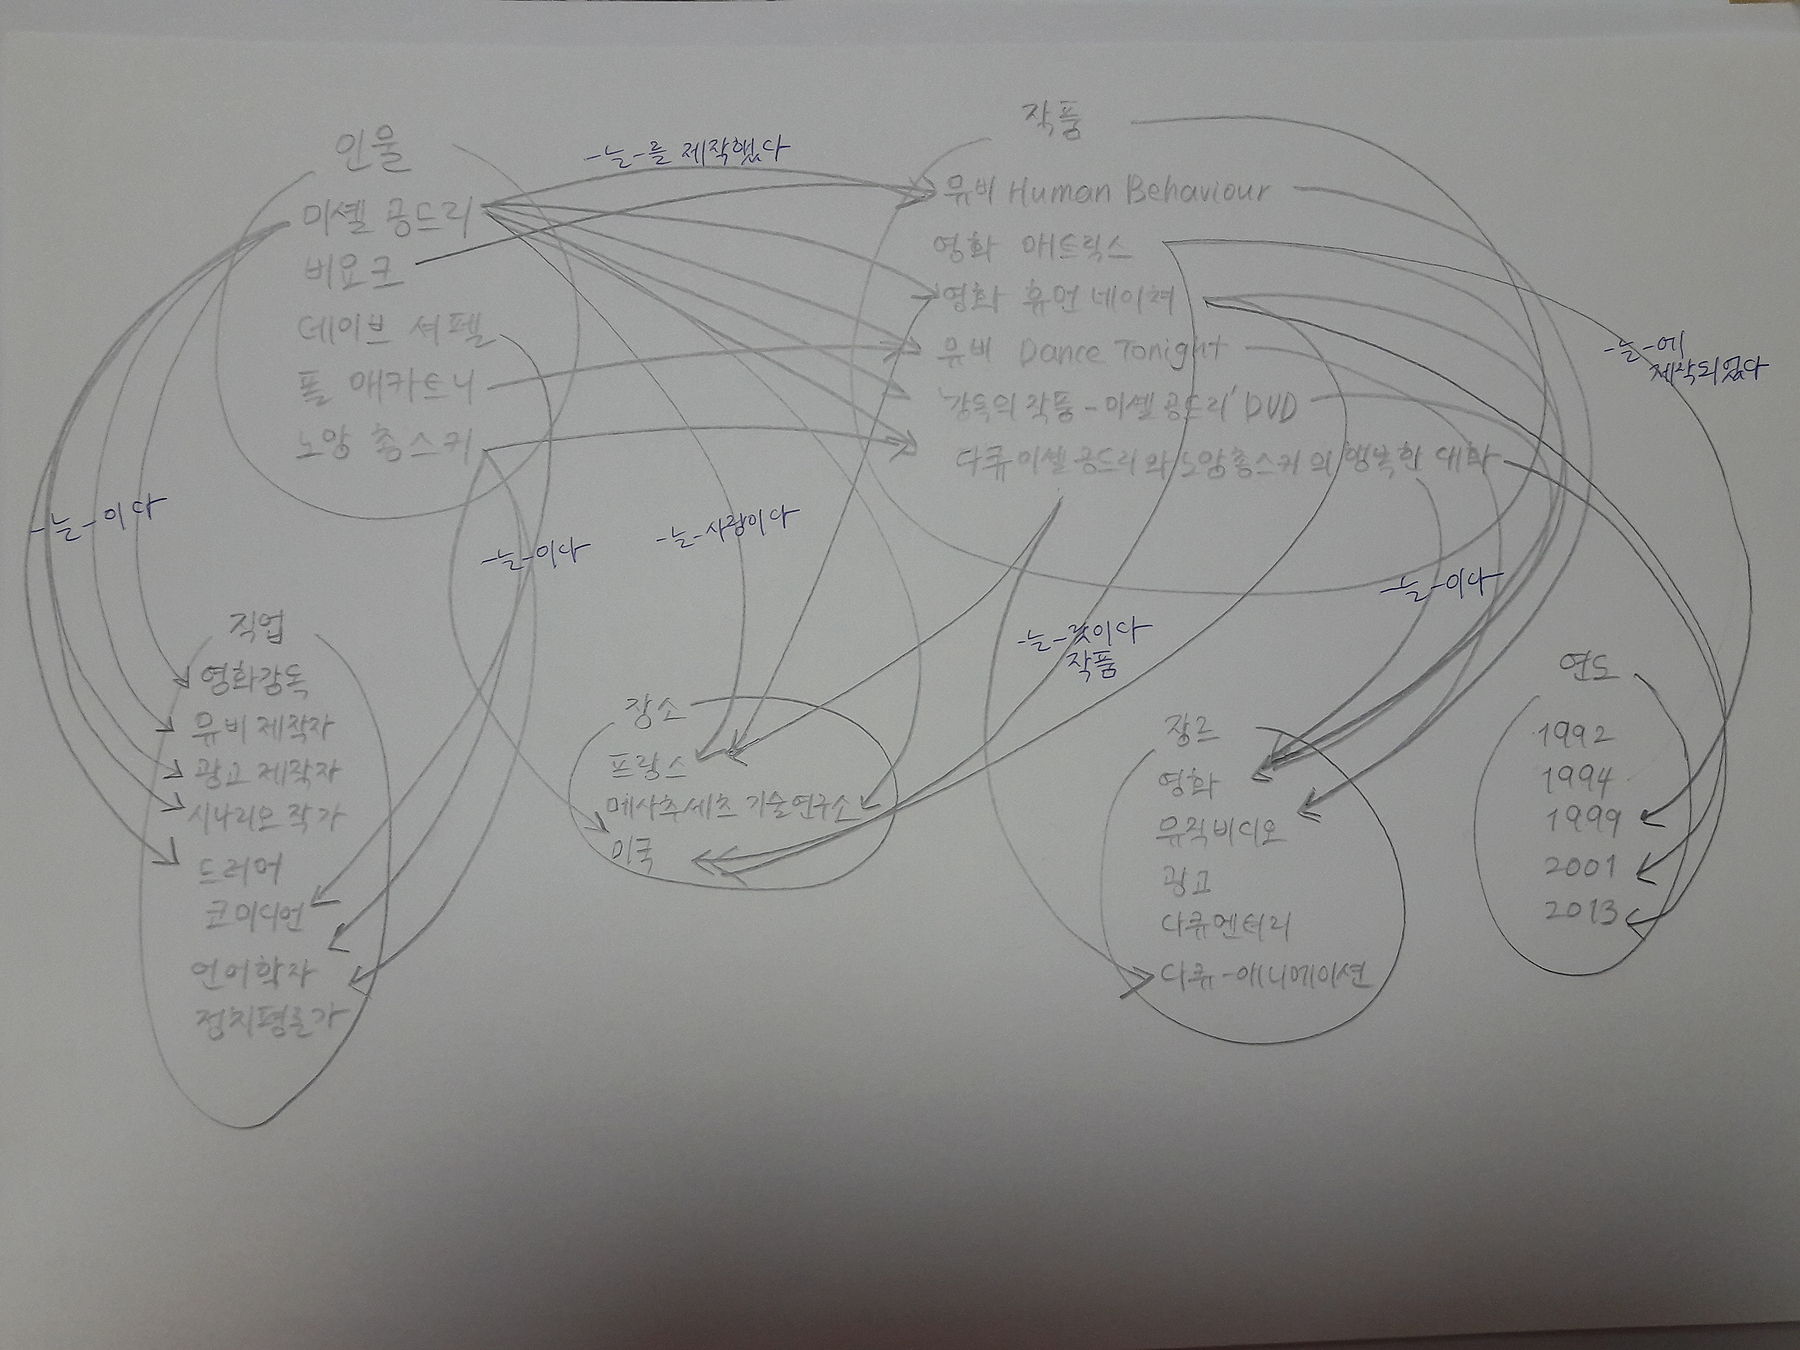 인물
미셸 공드리
비요크
데이브 셔펠
폴 매카트니
노암 촘스키
-는-를 제작했다
작품
뮤비 Human Behaviour
영화 매트릭스
영화 휴먼 네이쳐
뮤비 Dance Tonight
'감독의 작품-미셸 공드리' DVD
다큐 미셸 공드리와 노암 촘스키의 행복한 대화
-는-에
제작되었다
-는-이다
-는-이다
-는-사람이다
-는-이다
-는-
작품
이다
직업
영화감독
뮤비 제작자
광고 제작자
시나리오 작가
드러머
코미디언
언어학자
정치평론가
장소
프랑스
메사추세츠 기술연구소
미국
장르
영화
뮤직비디오
광고
다큐멘터리
다큐-애니메이션
연도
1992
1994
1999
2001
2013